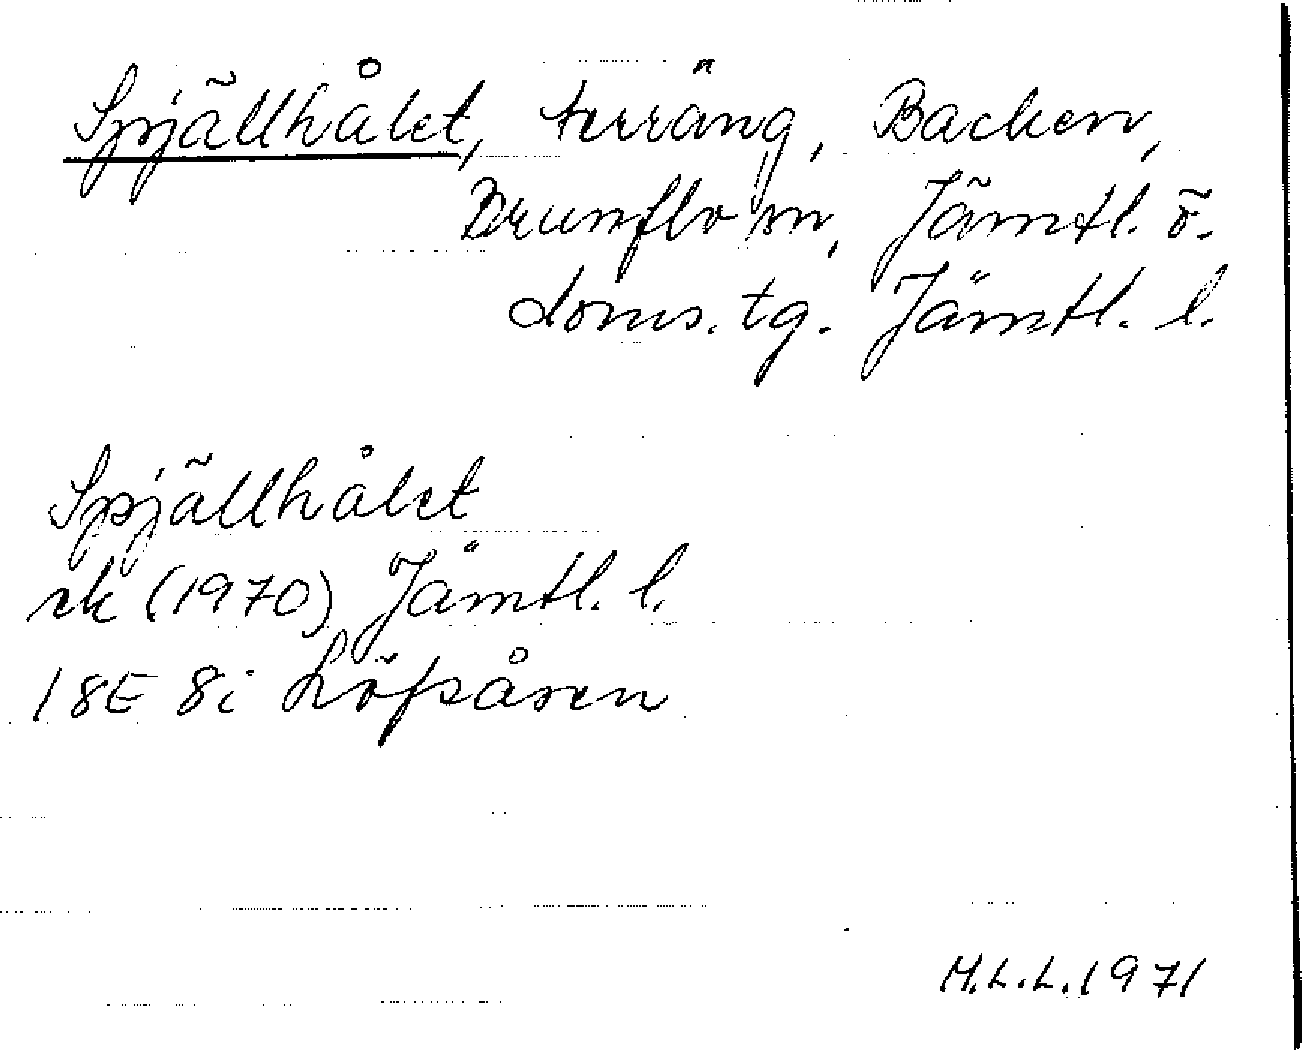 Spjällhålet, terräng, Backen,
Brunflo sn, Jämtl. ö.
doms. tg. Jämtl. l.
Spjällhålet
ek (1970) Jämtl. l.
18E 8i Löfsåsen
M.L.L. 1971